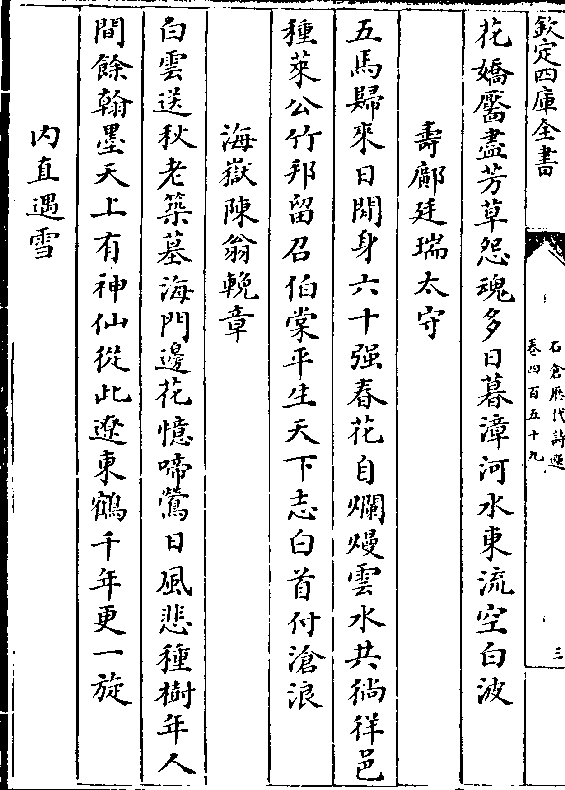 欽定四庫全書
石倉歷代詩選
卷四百五十九
三
花嬌靨盡芳草怨魂多日暮漳河水東流空白波
壽鄺廷瑞太守
五馬歸來日閒身六十强春花自爛熳雲水共徜徉邑
種萊公竹邦留召伯棠平生天下志白首付滄浪
海嶽陳翁輓章
白雲送秋老築墓海門邊花憶啼鶯日風悲種樹年人
間餘翰墨天上有神仙從此遼東鶴千年更一旋
内直遇雪